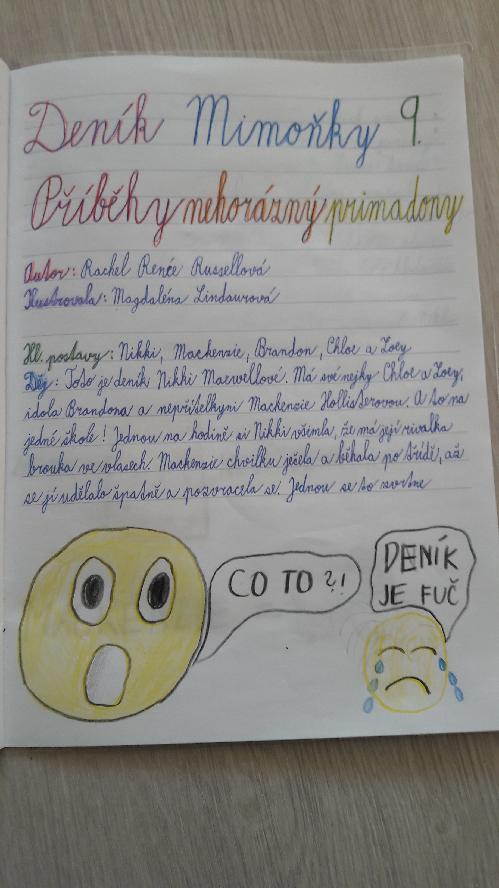 Deník Mimoňky 9.
Příběhy nehorázný primadony
Autor: Rachel Renée Russellová
Ilustrovala: Magdaléna Lindaurová
Hl. postavy: Nikki, Mackenzie, Brandon, Chloe a Zoey
Děj: Toto je deník Nikki Maxwellové. Má své nejky Chloe a Zoey,
idola Brandona a nepřítelkyni Mackenzie Hollisterovou. A to na
jedné škole! Jednou na hodině si Nikki všimla, že má její rivalka
brouka ve vlasech. Mackenzie chvilku ječela a běhala po třídě, až
se jí udělalo špatně a pozvracela se. Jednou se to zvrtne
CO TO?!
DENÍK
JE FUČ